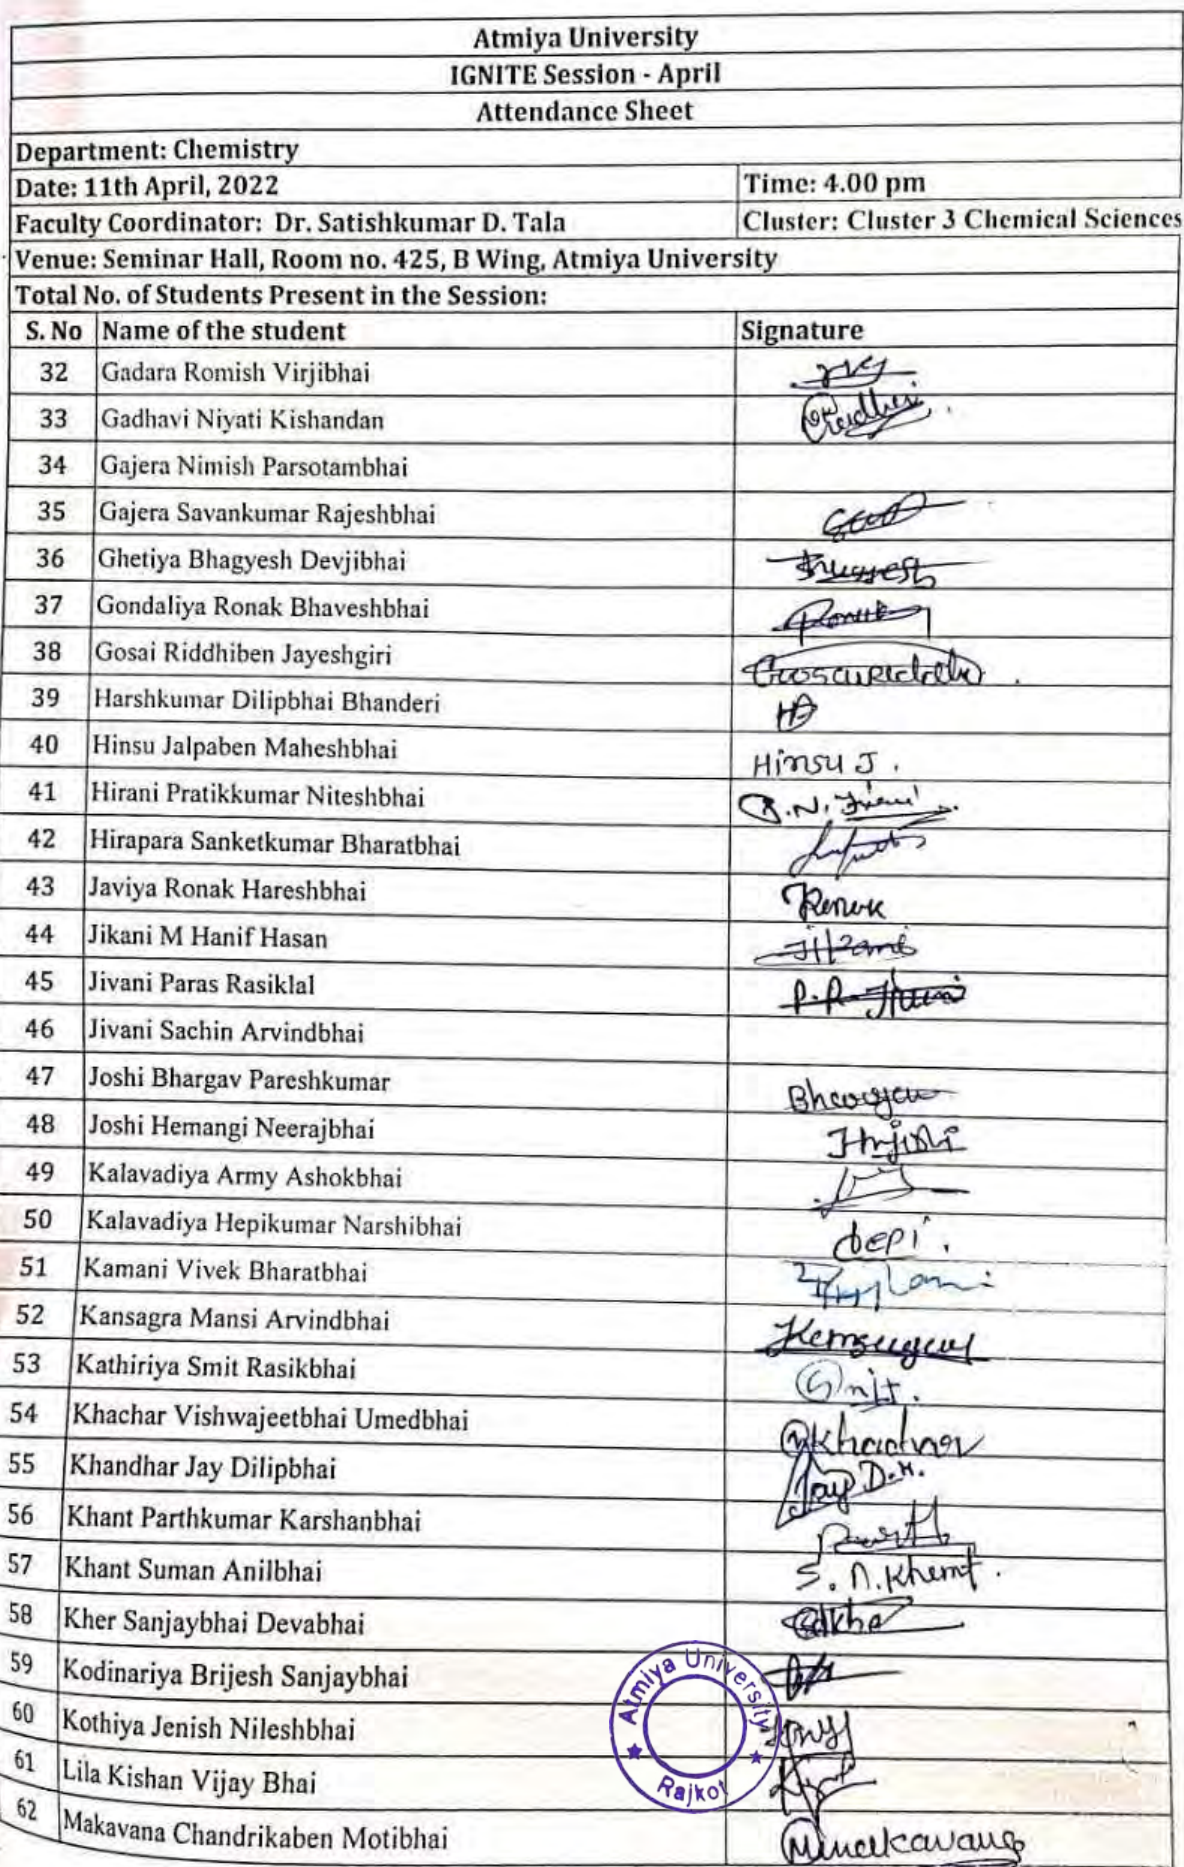 Atmiya University
IGNITE Session - April
Attendance Sheet
Department: Chemistry
Date: 11th April, 2022 Time: 4.00 pm
Faculty Coordinator: Dr. Satishkumar D. Tala Cluster: Cluster 3 Chemical Sciences
Venue: Seminar Hall, Room no. 425, B Wing, Atmiya University
Total No. of Students Present in the Session:
S. No Name of the student Signature
32 Gadara Romish Virjibhai
33 Gadhavi Niyati Kishandan
34 Gajera Nimish Parsotambhai
35 Gajera Savankumar Rajeshbhai
36 Ghetiya Bhagyesh Devjibhai
37 Gondaliya Ronak Bhaveshbhai
38 Gosai Riddhiben Jayeshgiri
39 Harshkumar Dilipbhai Bhanderi
40 Hinsu Jalpaben Maheshbhai Hinsu J.
41 Hirani Pratikkumar Niteshbhai
42 Hirapara Sanketkumar Bharatbhai
43 Javiya Ronak Hareshbhai
44 Jikani M Hanif Hasan
45 Jivani Paras Rasiklal
46 Jivani Sachin Arvindbhai
47 Joshi Bhargav Pareshkumar
48 Joshi Hemangi Neerajbhai
49 Kalavadiya Army Ashokbhai
50 Kalavadiya Hepikumar Narshibhai
51 Kamani Vivek Bharatbhai
52 Kansagra Mansi Arvindbhai
53 Kathiriya Smit Rasikbhai Smit.
54 Khachar Vishwajeetbhai Umedbhai
55 Khandhar Jay Dilipbhai Jay D.H.
56 Khant Parthkumar Karshanbhai
57 Khant Suman Anilbhai
58 Kher Sanjaybhai Devabhai
59 Kodinariya Brijesh Sanjaybhai
60 Kothiya Jenish Nileshbhai
61 Lila Kishan Vijay Bhai
62 Makavana Chandrikaben Motibhai
Atmiya University
Rajkot